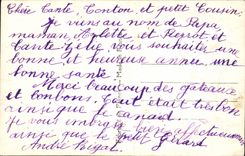 Chère Tante, Tonton et petit Cousin
Je viens au nom de Papa,
maman Arlette et Pierrot et
Tante Zélie, vous souhaiter une
bonne et heureuse année une
bonne santé.
Merci beaucoup des gâteaux
et bonbons. Tout était très bon
ainsi que le canard.
Je vous embrasse bien affectueusement
ainsi que le petit Gérard
André